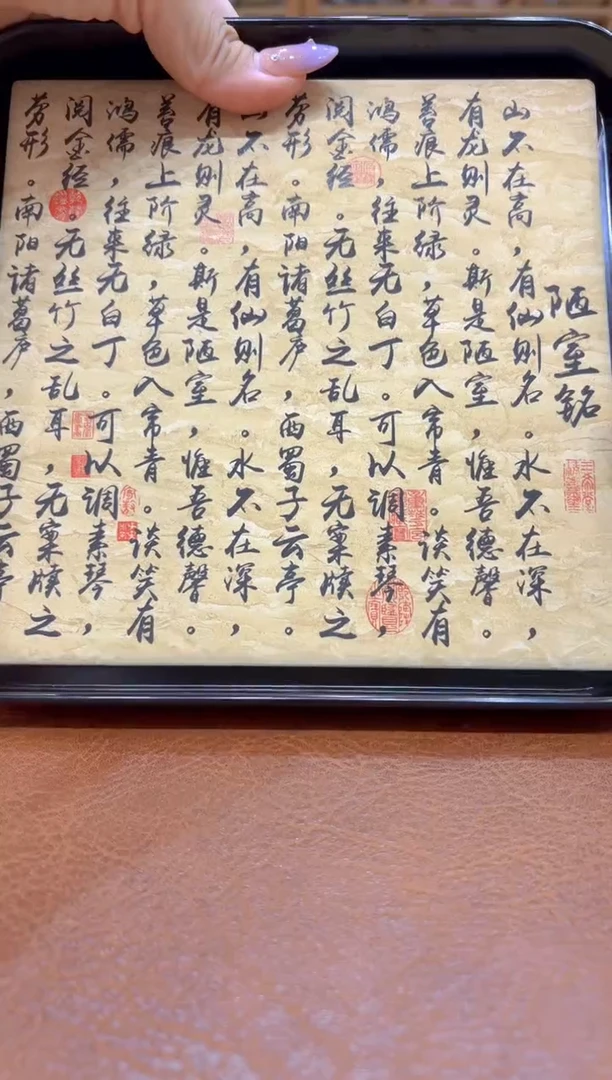 陋室铭
山不在高，有仙则名。水不在深，
有龙则灵。斯是陋室，惟吾德馨。
苔痕上阶绿，草色入帘青。谈笑有
鸿儒，往来无白丁。可以调素琴，
阅金经。无丝竹之乱耳，无案牍之
劳形。南阳诸葛庐，西蜀子云亭。
山不在高，有仙则名。水不在深，
有龙则灵。斯是陋室，惟吾德馨。
苔痕上阶绿，草色入帘青。谈笑有
鸿儒，往来无白丁。可以调素琴，
阅金经。无丝竹之乱耳，无案牍之
劳形。南阳诸葛庐，西蜀子云亭